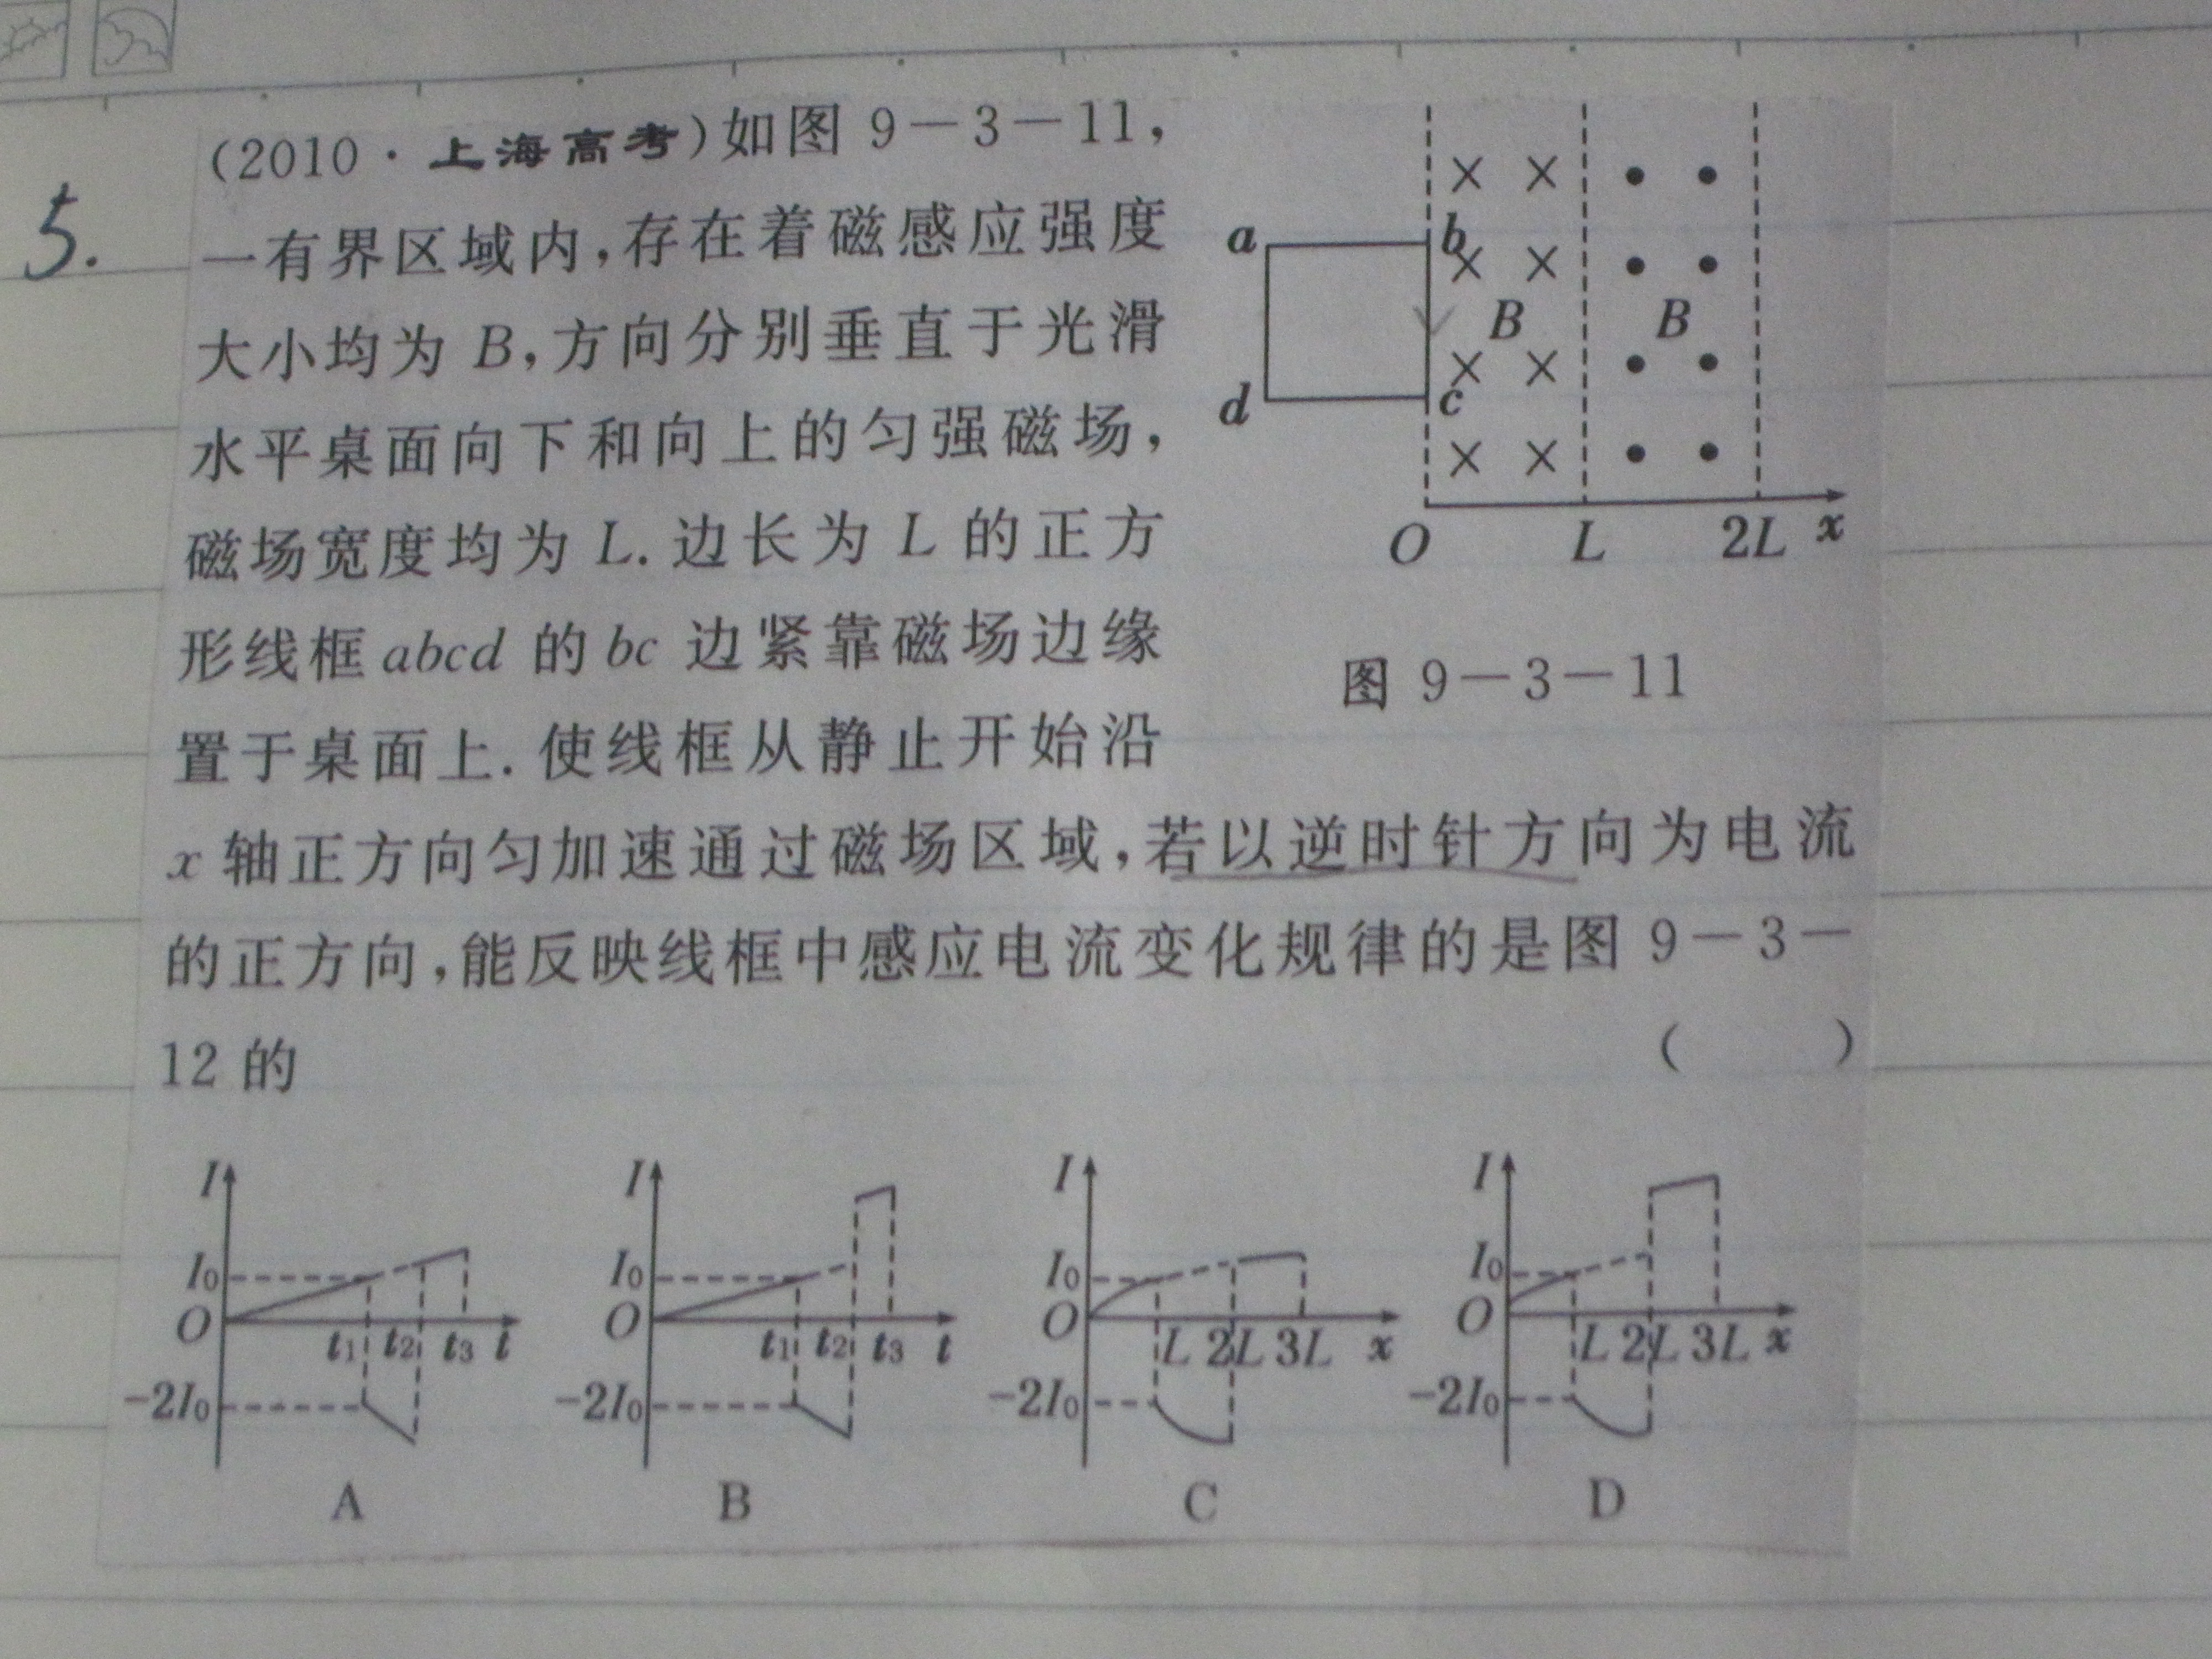 5.
(2010·上海高考)如图 9-3-11,
一有界区域内,存在着磁感应强度
大小均为 B,方向分别垂直于光滑
水平桌面向下和向上的匀强磁场,
磁场宽度均为 L. 边长为 L 的正方
形线框 abcd 的 bc 边紧靠磁场边缘
置于桌面上. 使线框从静止开始沿
x 轴正方向匀加速通过磁场区域,若以逆时针方向为电流
的正方向,能反映线框中感应电流变化规律的是图 9-3-
12 的 ( )
a b
B B
d c
O L 2L x
图 9-3-11
I I I I
I₀ I₀ I₀ I₀
O t₁ t₂ t₃ t O t₁ t₂ t₃ t O L 2L 3L x O L 2L 3L x
-2I₀ -2I₀ -2I₀ -2I₀
A B C D